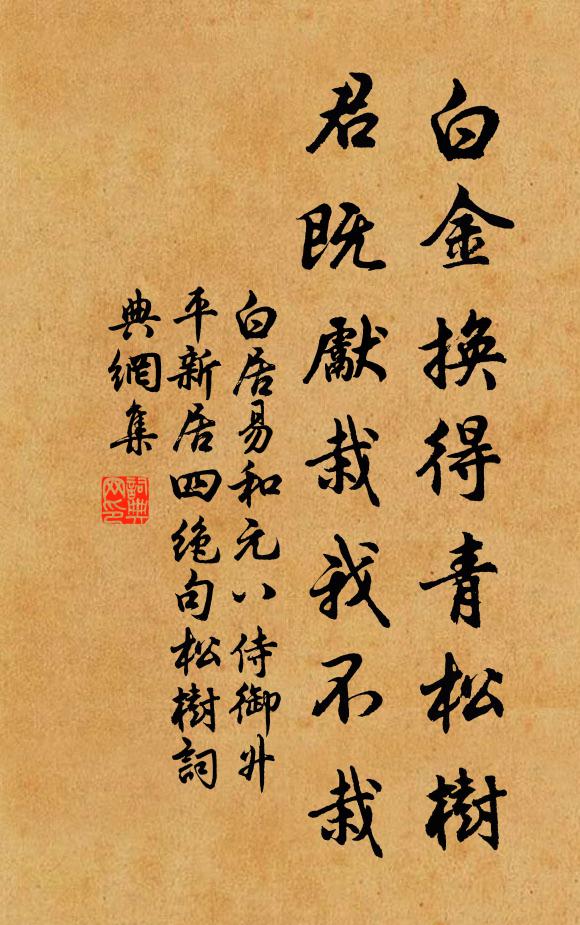 白金換得青松樹
君既獻栽我不栽
白居易和元八侍御升
平新居四絕句松樹詞
典網集
詞典
网印